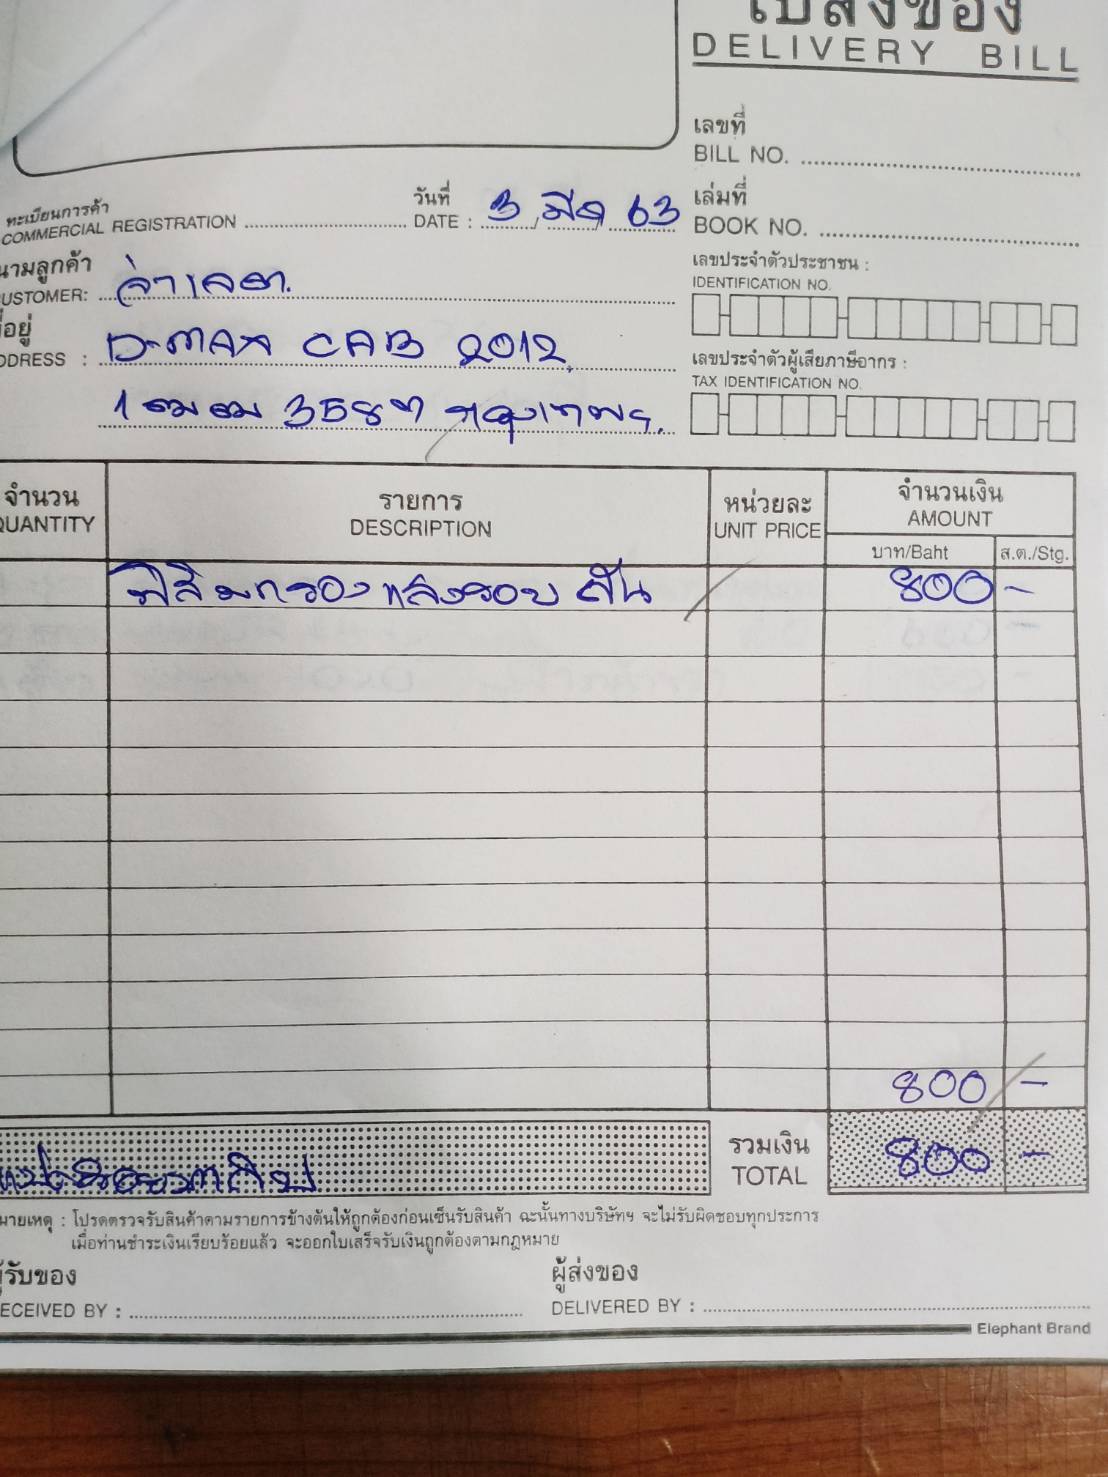 ใบส่งของ
DELIVERY BILL
เลขที่
BILL NO.
ทะเบียนการค้า
COMMERCIAL REGISTRATION
วันที่
DATE : 3 มีค 63
เล่มที่
BOOK NO.
นามลูกค้า
CUSTOMER: จ่าเลอ
เลขประจำตัวประชาชน :
IDENTIFICATION NO.
ที่อยู่
ADDRESS : D-MAX CAB 2012
เลขประจำตัวผู้เสียภาษีอากร :
TAX IDENTIFICATION NO.
1 ฒฒ 3587 กรุงเทพฯ
จำนวน
QUANTITY
รายการ
DESCRIPTION
หน่วยละ
UNIT PRICE
จำนวนเงิน
AMOUNT
บาท/Baht
ส.ต./Stg.
ฟิล์มกรองแสงรอบคัน 800 -
800 -
แปดร้อยบาท
รวมเงิน
TOTAL
800 -
หมายเหตุ : โปรดตรวจรับสินค้าตามรายการข้างต้นให้ถูกต้องก่อนเซ็นรับสินค้า ฉะนั้นทางบริษัทฯ จะไม่รับผิดชอบทุกประการ
เมื่อท่านชำระเงินเรียบร้อยแล้ว จะออกใบเสร็จรับเงินถูกต้องตามกฎหมาย
ผู้รับของ
RECEIVED BY :
ผู้ส่งของ
DELIVERED BY :
Elephant Brand